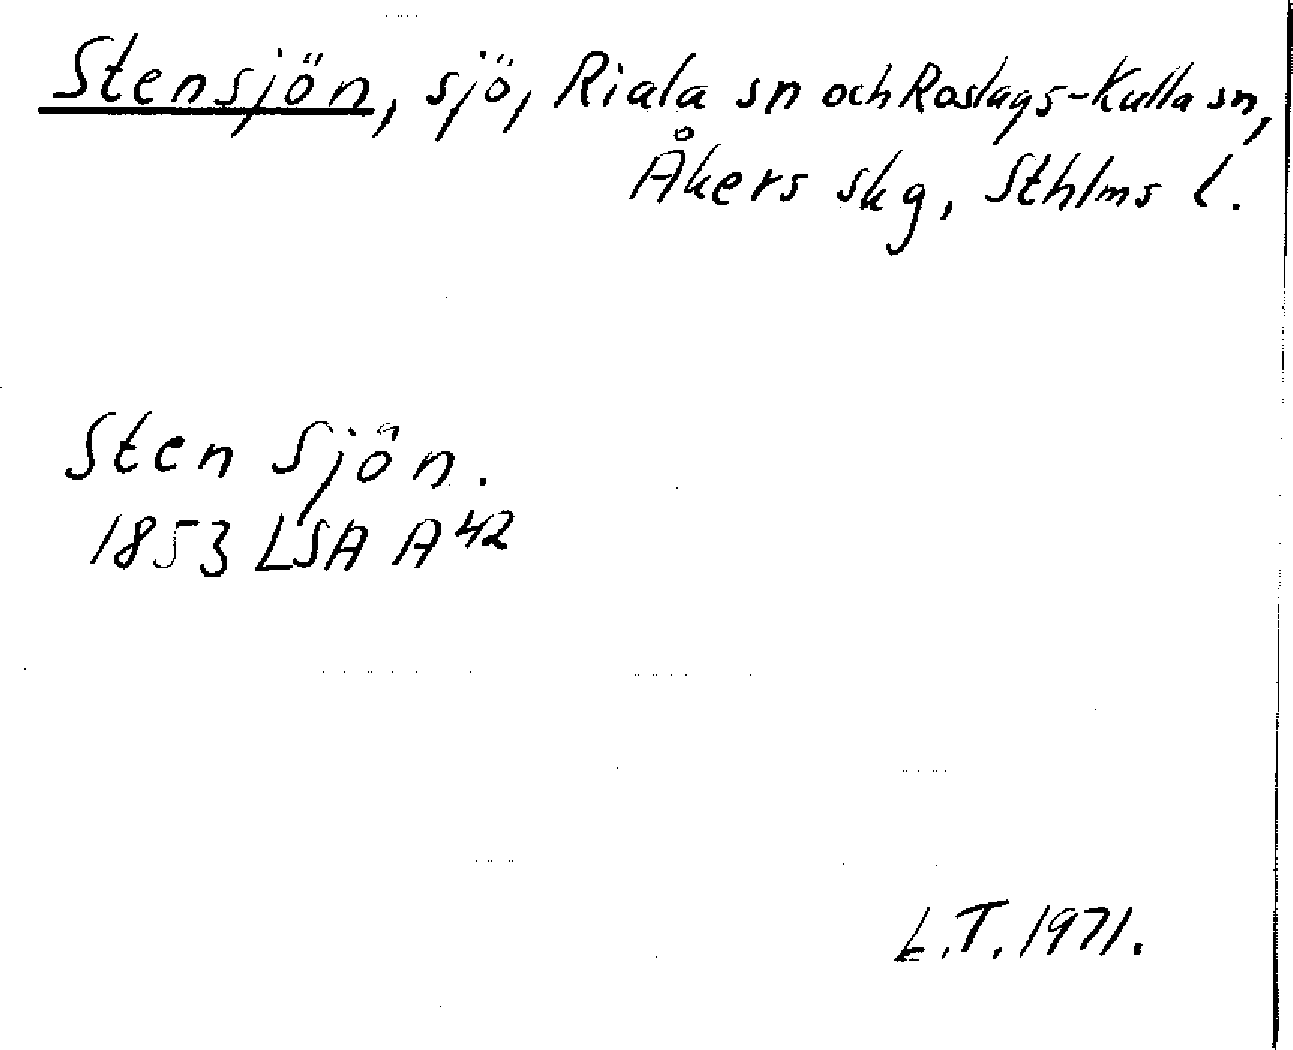 Stensjön, sjö, Riala sn och Roslags-Kulla sn,
Åkers skg, Sthlms l.
Sten Sjön.
1853 LSA A 42
L.T. 1971.